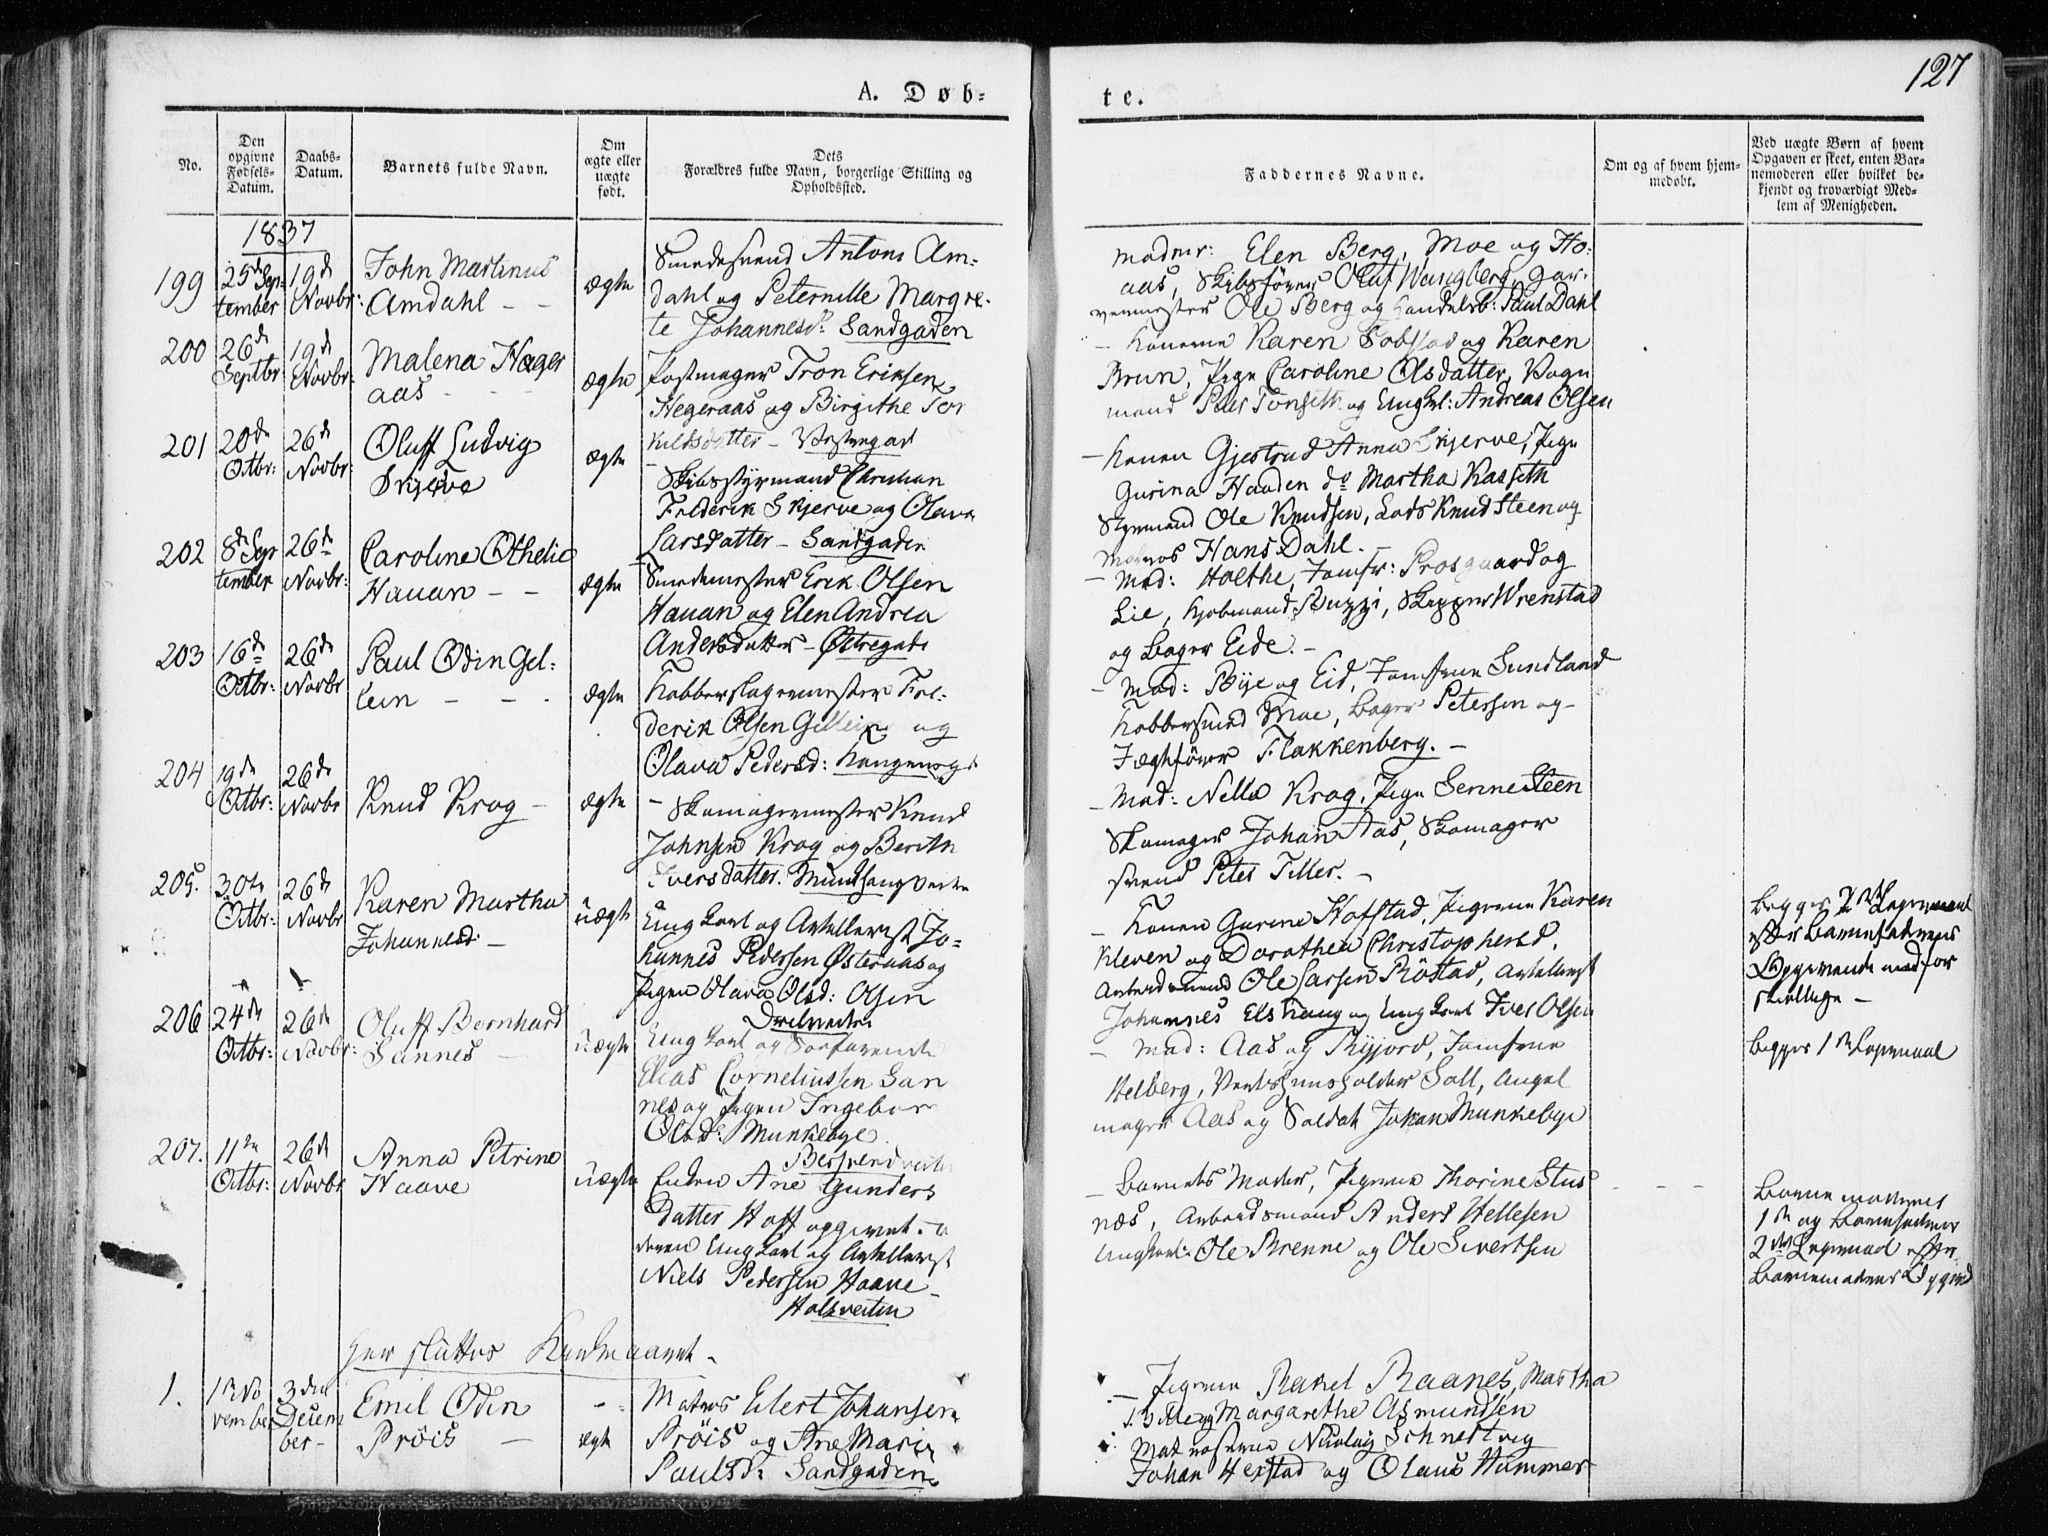 127
A. Døb-
te.
No.
Den opgivne Fødsels-Datum.
Daabs-Datum.
Barnets fulde Navn.
Om ægte eller uægte født.
Dets Forældres fulde Navn, borgerlige Stilling og Opholdssted.
Faddernes Navne.
Om og af hvem hjemmedøbt.
Ved uægte Børn af hvem Opgaven er skeet, enten Barnemoderen eller hvilket bekjendt og troværdigt Medlem af Menigheden.
1837
199
25de September
19de Novbr:
John Martinus
Amdahl
ægte
Smedesvend Antoni Am-
dahl og Peternille Margre-
te Johannesd: Sandgaden
Madmr: Elen Berg, Moe og Ho-
aas, Skibsfører Oluf Wangberg, Gar-
vermester Ole Berg og Handelsb: Paul Dahl
200
26de Septbr
19de Novbr:
Malena Hager
aas
ægte
Tron Eriksen
Hegeraas og Birgithe Tor
kildsdatter - Vestregad
Konerne Karen Fobstad og Karen
Brun, Pige Caroline Olsdatter, Vogn
mand Peter Tonseth og Ungkl: Andreas Olsen
201
20de Octbr:
26de Novbr:
Oluff Ludvig
Skjerve
ægte
Skibsstyrmand Christian
Frederik Skjerve og Olava
Larsdatter - Sandgaden
Konen Gjertrud Anna Skjerve, Pige
Gurina Haaden do Martha Kasseth
Styrmand Ole Knudsen, Lods Knud Steen og
Matros Hans Dahl.
202
8de September
26de Novbr:
Caroline Othelie
Hauan
ægte
Smedemester Erik Olsen
Hauan og Elen Andrea
Andersdatter - Østregade
Mad: Holthe, Jomfr: Prosgaard og
Lie, Kjobmand Buzzi, Skipper Wrenstad
og Bager Eide.
203
16de Octbr:
26de Novbr
Paul Odin Gel-
lein
ægte
Kobberslagermester Fre-
derik Olsen Gellein og
Olava Pedersd:
Mad: Bye og Eid, Jomfrue Sundland
Kobbersmed Moe, Bager Petersen og
Jægtfører Flakkenberg.
204
19de Octbr:
26de Novbr
Knud Krog
ægte
Skomagermester Knud
Johnsen Krog og Berith
Iversdatter.
Mad: Nella Krog, Pige Serine Steen
Skomager Johan Aas, Skomager
svend Peter Tiller.
205.
30te Octbr:
26de Novbr
Karen Martha
Johannesd:
uægte
Ung Karl og Artillerist Jo-
hannes Pedersen Østeraas og
Pigen Olava Olsd: Olsen
Konen Gurine Hofstad, Pigerne Karen
Kleven og Dorothea Christophersd.
Arbeidsmand Ole Larsen Röstad, Artillerist
Johannes Elshaug og Ung Karl Iver Olsen
Begges 2det Leiermaal
efter Barnefaderens
Opgivende
206
24de Octbr:
26de Novbr:
Oluff Bernhard
Sannes
uægte
Ung Karl og Søefarende
Elias Corneliussen San
nes og Pigen Ingebor
Olsd: Munkebye
Mad: Aas og Ryjord, Jomfrue
Helberg, Vertshuusholder Soll, Angel
mager Aas og Soldat Johan Munkebye
Begges 1ste Leiermaal
207.
11te Octbr:
26de Novbr
Anna Petrine
Haave
uægte
Enken Ane Gunders
datter Hoff
Ung Karl og Artillerist
Niels Pedersen Haave
Holsveiten
Barnets Moder, Pigerne Thorine Stus
næs, Arbeidsmand Anders Hellesen
Ungkarl: Ole Brenne og Ole Sivertsen
Barnemoderens
1ste og Barnefaderens
2det Leiermaal efter
Barnemoderens Opgivd
Her sluttes Kirkeaaret
1.
1ste November
3die December
Emil Odin
Pröis
ægte
Matros Elert Johansen
Pröis og Ane Marie
Paulsd: Sandgaden
Pigerne Rakel Raanes, Martha
Margarethe Asmundsen
Matroserne Nicolay Schnedtvig
Johan Hexstad og Olaus Hammer